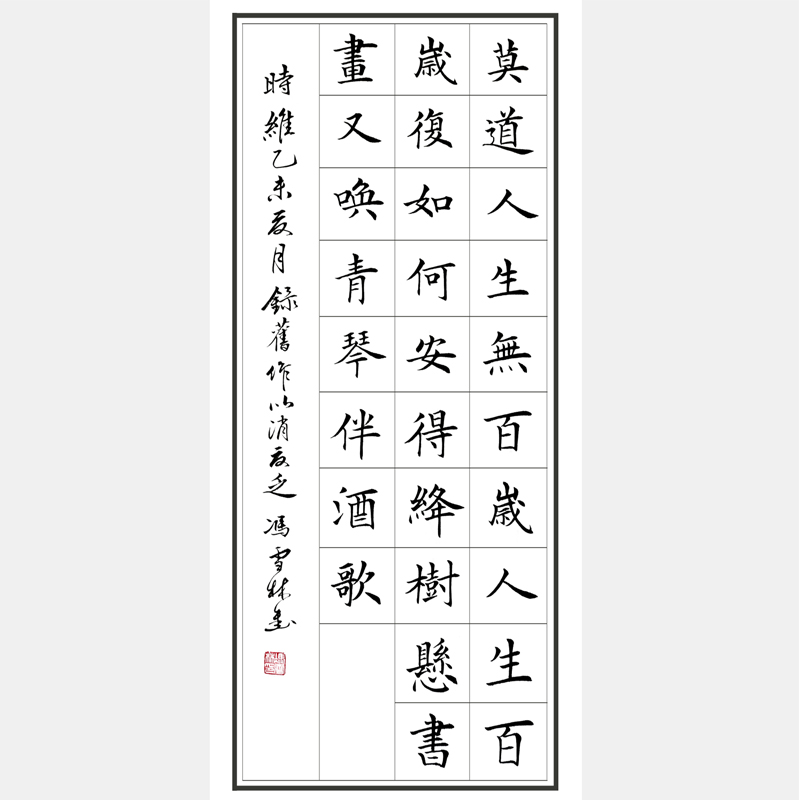 莫道人生無百歲人生百
歲復如何安得絳樹懸書
畫又喚青琴伴酒歌
時維乙未夏月錄舊作以消夏乏馮雪林書